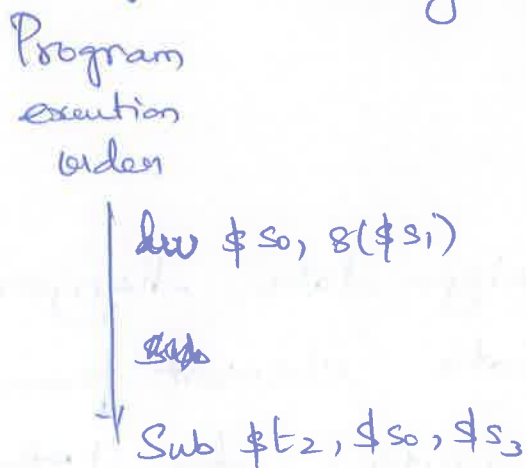 Program
exection
order
lw $s0, 8($s1)
Sub $t2, $s0, $s3